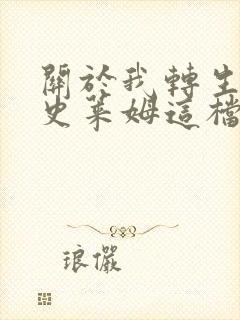 關於我轉生
史萊姆這檔
琅儼